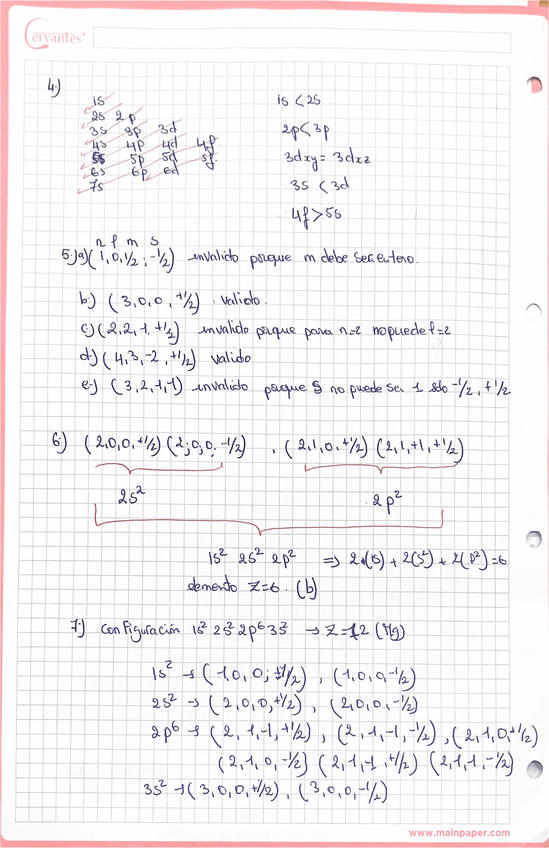 Cervantes
4.)
1s
2s 2p
3s 3p 3d
4s 4p 4d 4f
5s 5p 5d 5f
6s 6p 6d
7s
1s < 2s
2p < 3p
3dxy = 3dxz
3s < 3d
4f > 5s
n l m s
5.)a) (1,0,1/2,-1/2) invalido porque m debe ser entero.
b) (3,0,0,+1/2) valido.
c) (2,2,1,+1/2) invalido porque para n=2 no puede l=2
d) (4,3,-2,+1/2) valido
e) (3,2,1,1) invalido porque s no puede ser 1 solo -1/2, +1/2
6) (2,0,0,+1/2) (2;0;0,-1/2) , (2,1,0,+1/2) (2,1,+1,+1/2)
2s² 2p²
1s² 2s² 2p² ⇒ 2(1s) + 2(s²) + 2(p²) = 6
elemento Z=6. (b)
7) Configuración 1s² 2s² 2p⁶ 3s² → Z=12 (Mg)
1s² → (1,0,0;+1/2) , (1,0,0,-1/2)
2s² → (2,0,0,+1/2) , (2,0,0,-1/2)
2p⁶ → (2,1,-1,+1/2) , (2,1,-1,-1/2) , (2,1,0,+1/2)
(2,1,0,-1/2) (2,1,1,+1/2) (2,1,1,-1/2)
3s² → (3,0,0,+1/2) , (3,0,0,-1/2)
www.mainpaper.com